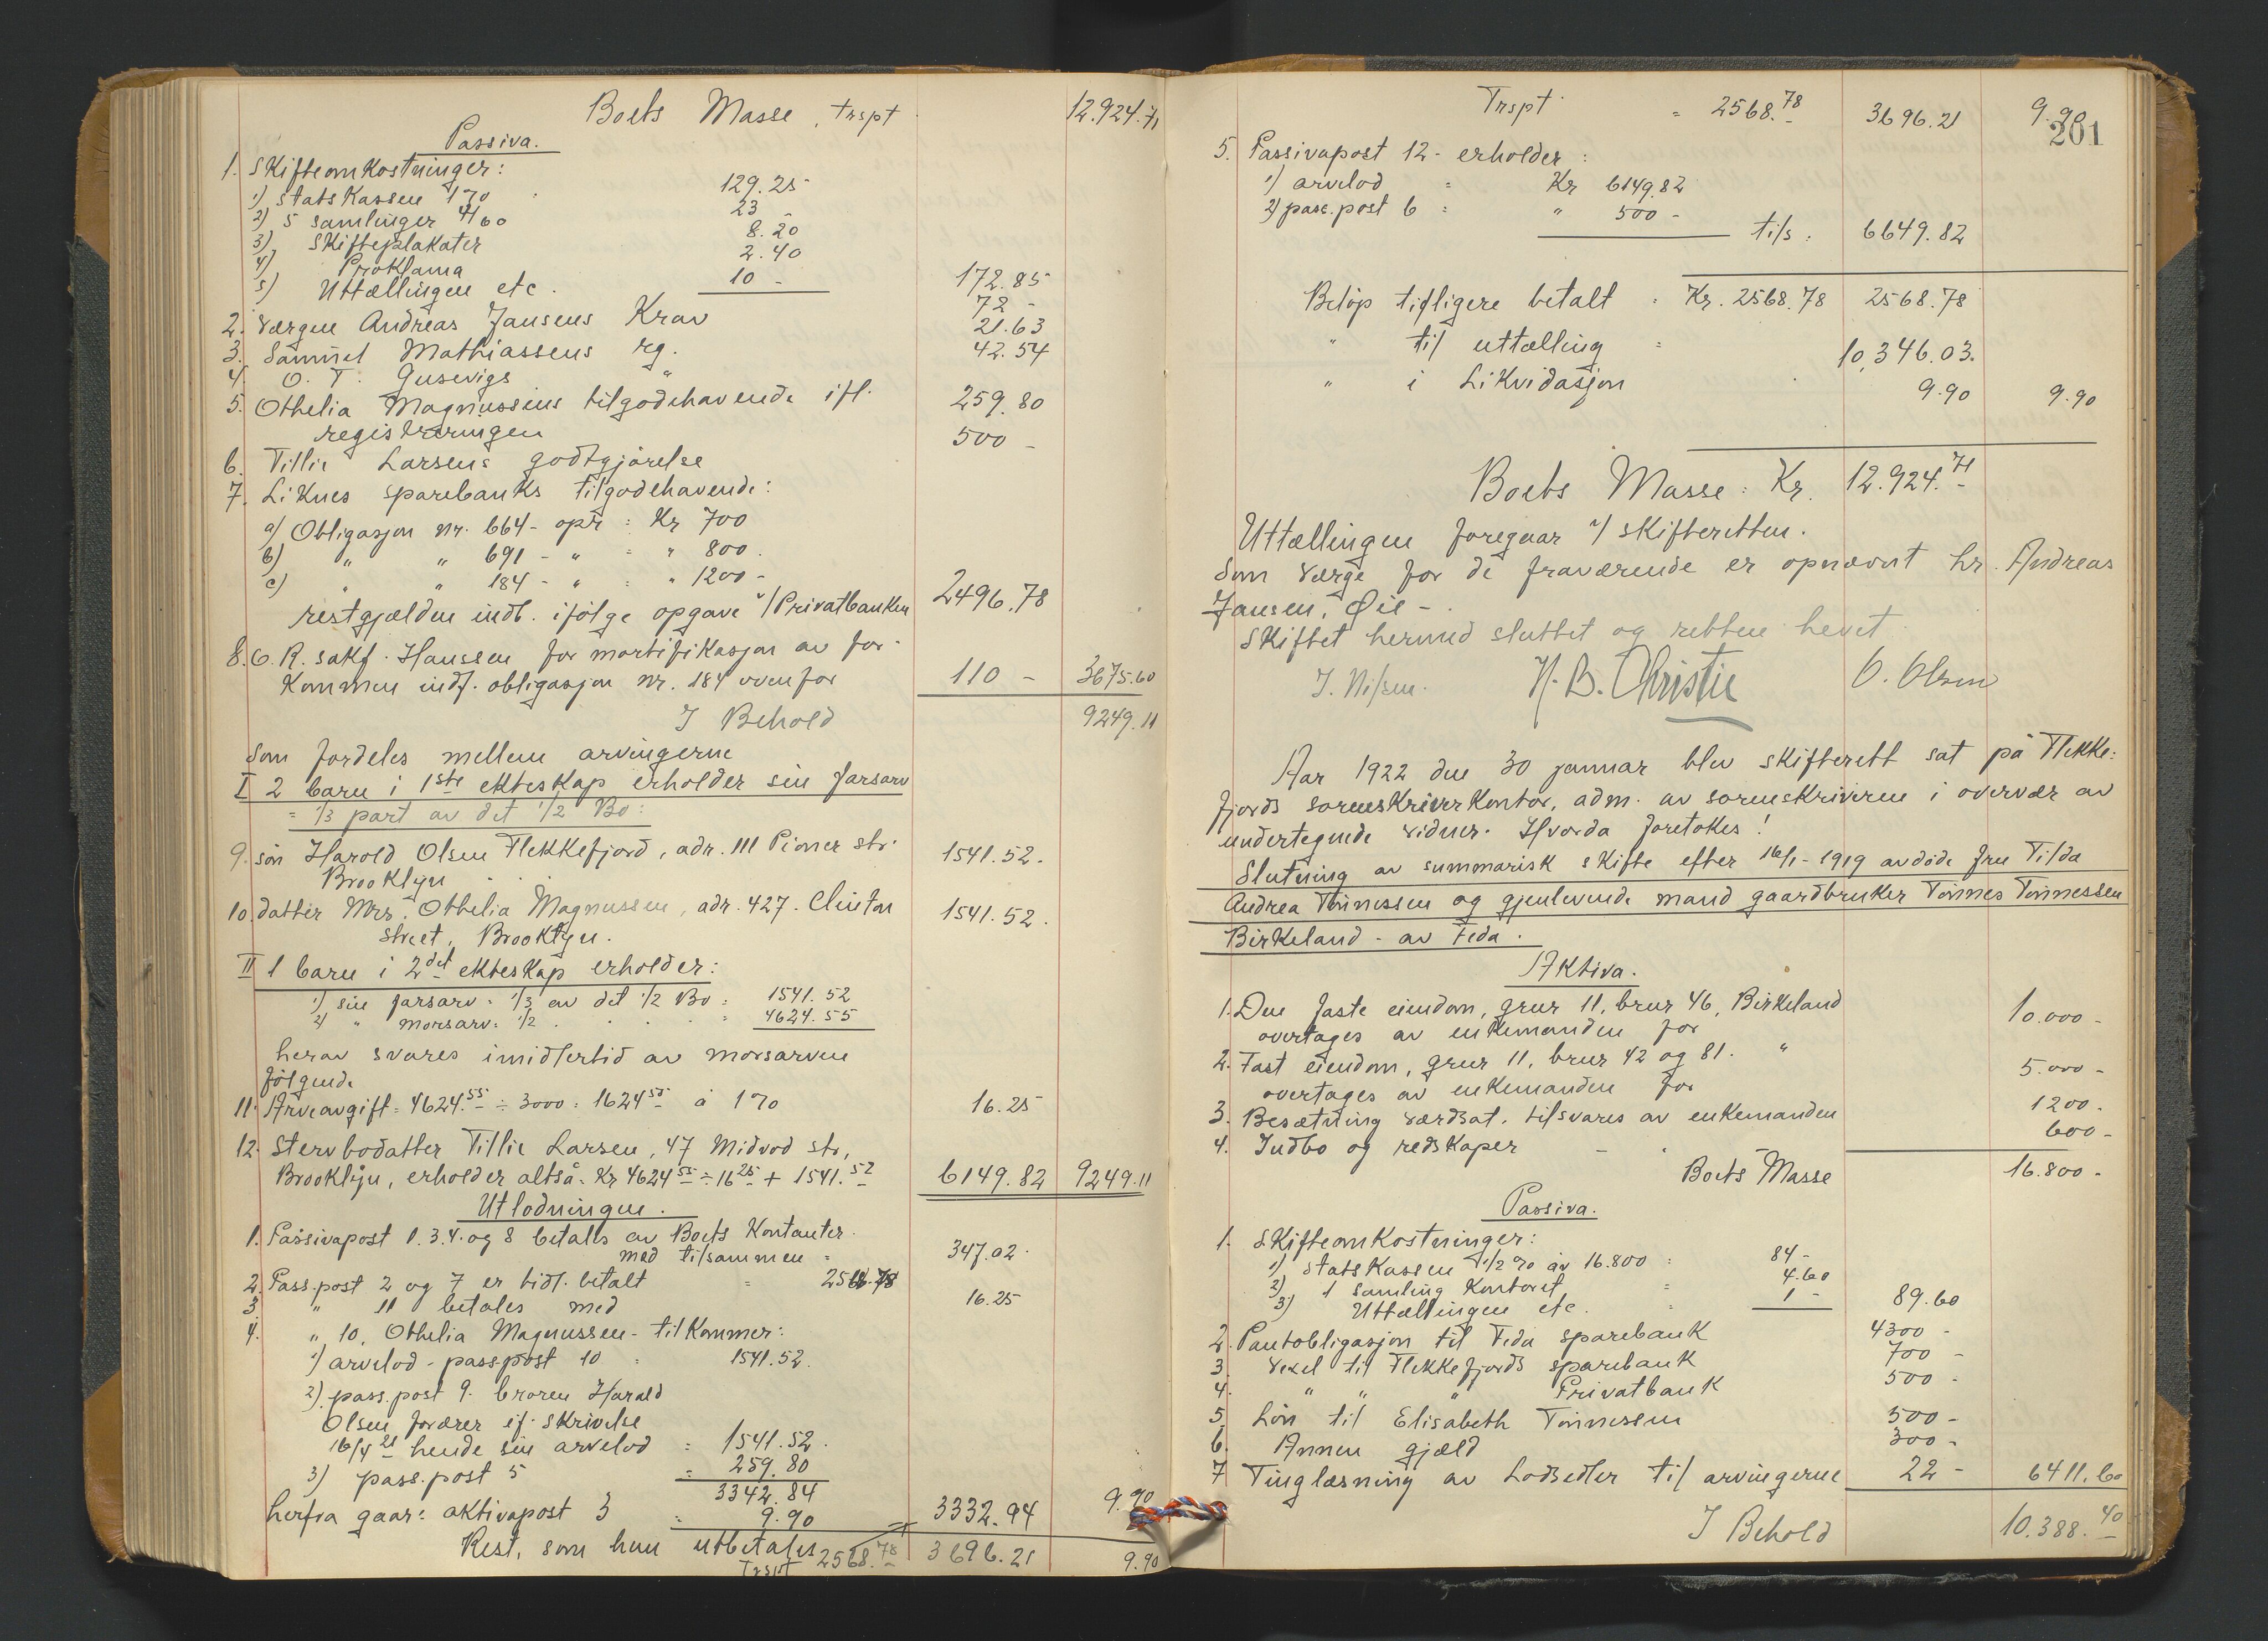 Boets Masse, trspt 12.924.71
Passiva.
1. Skifteomkostninger:
1) Statskassen 1% 129.25
2) 5 samlinger 4/60 23 -
3) Skifteplakater 8.20
4) Proklama 2.40
5) Uttællingen etc. 10 - 172.85
2. Værgen Andreas Jansens Krav 72 -
3. Samuel Mathiassens rg. 21.63
4. O. T. Gusevigs " 42.54
5. Othelia Magnussens tilgodehavende ifl.
registreringen 259.80
6. Tillie Larsens godtgjørelse 500 -
7. Liknes sparebanks tilgodehavende:
a) Obligasjon nr. 664 - opr : Kr 700
b) " " 691 - " = " 800.
c) " " 184 - " : " 1200 -
restgjælden indb. ifølge opgave v/Privatbanken 2496.78
8. O.R. sakf. Hanssen for mortifikasjon av for-
kommen indf. obligasjon nr. 184 ovenfor 110 - 3675.60
I Behold 9249.11
Som fordeles mellem arvingerne
I 2 barn i 1ste ekteskap erholder sin farsarv
= 1/3 part av det 1/2 Bo:
9. søn Harold Olsen Flekkefjord, adr. 111 Pioner str.
Brooklyn 1541.52.
10. datter Mrs. Othelia Magnussen, adr. 427. Clinton
street, Brooklyn. 1541.52.
II 1 barn i 2det ekteskap erholder:
1) sin farsarv = 1/3 av det 1/2 Bo = 1541.52
2) " morsarv = 1/2 . . . . = 4624.55
herav svares imidlertid av morsarven
følgende
11. Arveavgift = 4624.55 ÷ 3000 = 1624.55 à 1% 16.25
12. Stervbodatter Tillie Larsen, 47 Midvod str,
Brooklyn, erholder altså: Kr 4624.55 ÷ 16.25 + 1541.52 6149.82 9249.11
Utlodningen.
1. Passivapost 1. 3. 4. og 8 betales av Boets Kontanter
med tilsammen = 347.02.
2. Pass.post 2 og 7 er tidl. betalt = 2568.78
3. " 11 betales med 16.25
4. " 10, Othelia Magnussen - tilkommer:
1) arvelod - pass.post 10 = 1541.52.
2) pass.post 9. broren Harald
Olsen forærer if. skrivelse
16/4 21 hende sin arvelod = 1541.52.
3) pass.post 5 = 259.80
3342.84
herfra gaar: aktivapost 3 = 9.90 9.90
Rest, som hun utbetales = 3332.94
Trspt 2568.78 3696.21 9.90
Trspt = 2568.78 3696.21 9.90
201
5. Passivapost 12 - erholder:
1) arvelod = Kr 6149.82
2) pass.post 6 = " 500 -
tils: 6649.82
Beløp tidligere betalt : Kr. 2568.78 2568.78
" til uttælling = 10,346.03.
" i Likvidasjon 9.90 9.90
Boets Masse: Kr. 12.924.71
Uttællingen foregaar v/ skifteretten.
Som værge for de fraværende er opnævnt hr. Andreas
Jansen, Øie -.
Skiftet hermed sluttet og retten hevet
J. Nilsen. H. B. Christie O. Olsen
Aar 1922 den 30 januar blev skifterett sat på Flekke-
fjords sorenskriverkontor, adm. av sorenskriveren i overvær av
undertegnede vidner. Hvorda foretokes!
Slutning av summarisk skifte efter 16/1-1919 avdøde fru Tilda
Andrea Tønnessen og gjenlevende mand gaardbruker Tønnes Tønnessen
Birkeland - av Feda.
Aktiva.
1. Den faste eiendom, gnr 11, bnr 46, Birkeland
overtages av enkemanden for 10.000 -
2. Fast eiendom, gnr 11, bnr 42 og 81. "
overtages av enkemanden for 5.000 -
3. Besætning værdsat, tilsvares av enkemanden 1200.
4. Indbo og redskaper - 600 -
Boets Masse 16.800 -
Passiva.
1. Skifteomkostninger:
1) Statskassen 1/2 % av 16.800 = 84 -
2) 1 samling Kontoret = 4.60
3) Uttællingen etc. = 1 - 89.60
2. Pantobligasjon til Feda sparebank 4300 -
3. Vexel til Flekkefjords sparebank 700 -
4. " " " Privatbank 500 -
5. Løn til Elisabeth Tønnessen 500 -
6. Annen gjæld 300 -
7. Tinglæsning av Lodsedler til arvingerne 22 - 6411.60
I Behold 10.388.40